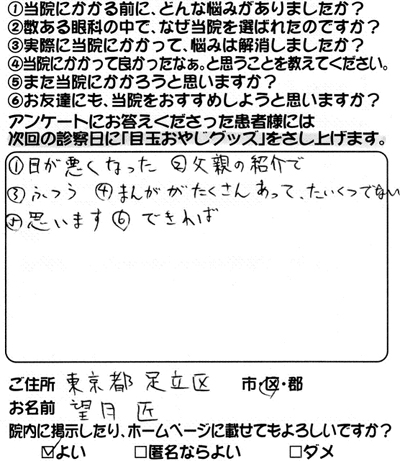 ①当院にかかる前に、どんな悩みがありましたか？
②数ある眼科の中で、なぜ当院を選ばれたのですか？
③実際に当院にかかって、悩みは解消しましたか？
④当院にかかって良かったなぁ。と思うことを教えてください。
⑤また当院にかかろうと思いますか？
⑥お友達にも、当院をおすすめしようと思いますか？
アンケートにお答えくださった患者様には
次回の診察日に「目玉おやじグッズ」をさし上げます。
①目が悪くなった ②父親の紹介で
③ふつう ④まんががたくさんあって、たいくつでない
⑤思います ⑥できれば
ご住所 東京都足立区 市・区・郡
お名前 望月 匠
院内に掲示したり、ホームページに載せてもよろしいですか？
☑よい □匿名ならよい □ダメ